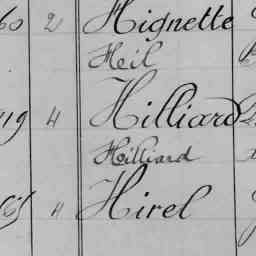 60 2 Hignette
Heil
419 4 Hilliard
Hilliard
4 Hirel